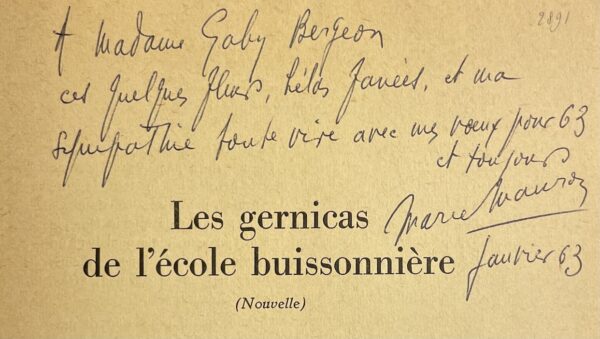 2891
A Madame Gaby Bergeon
ces quelques fleurs, hélas fanées, et ma
sympathie toute vive avec mes vœux pour 63
et toujours
Marie Mauron
Janvier 63
Les gernicas
de l'école buissonnière
(Nouvelle)